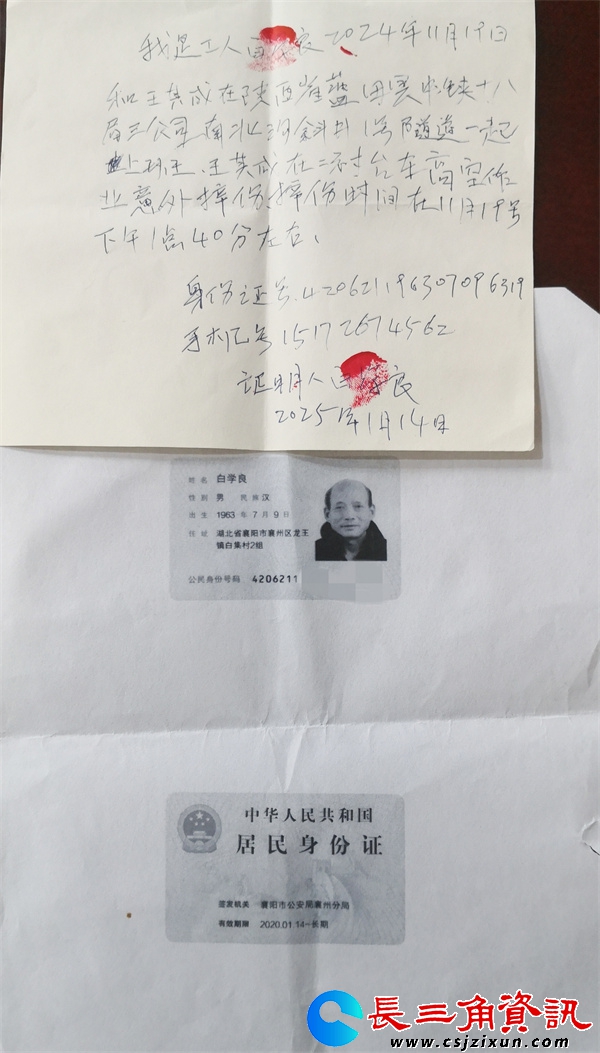 我是工人白学良2024年11月19日
和王其成在陕西省蓝田县中铁十八
局三公司南北沟斜井1号隧道一起
上班王、王其成在二衬台车高空作
业意外摔伤摔伤时间在11月19号
下午1点40分左右、
身份证号420621196307096319
手机号15172674562
证明人白学良
2025年1月14日
姓名 白学良
性别 男 民族 汉
出生 1963 年 7 月 9 日
住址 湖北省襄阳市襄州区龙王
镇白集村2组
公民身份号码 4206211
中华人民共和国
居民身份证
签发机关 襄阳市公安局襄州分局
有效期限 2020.01.14-长期
長三角資訊
www.csjzixun.com